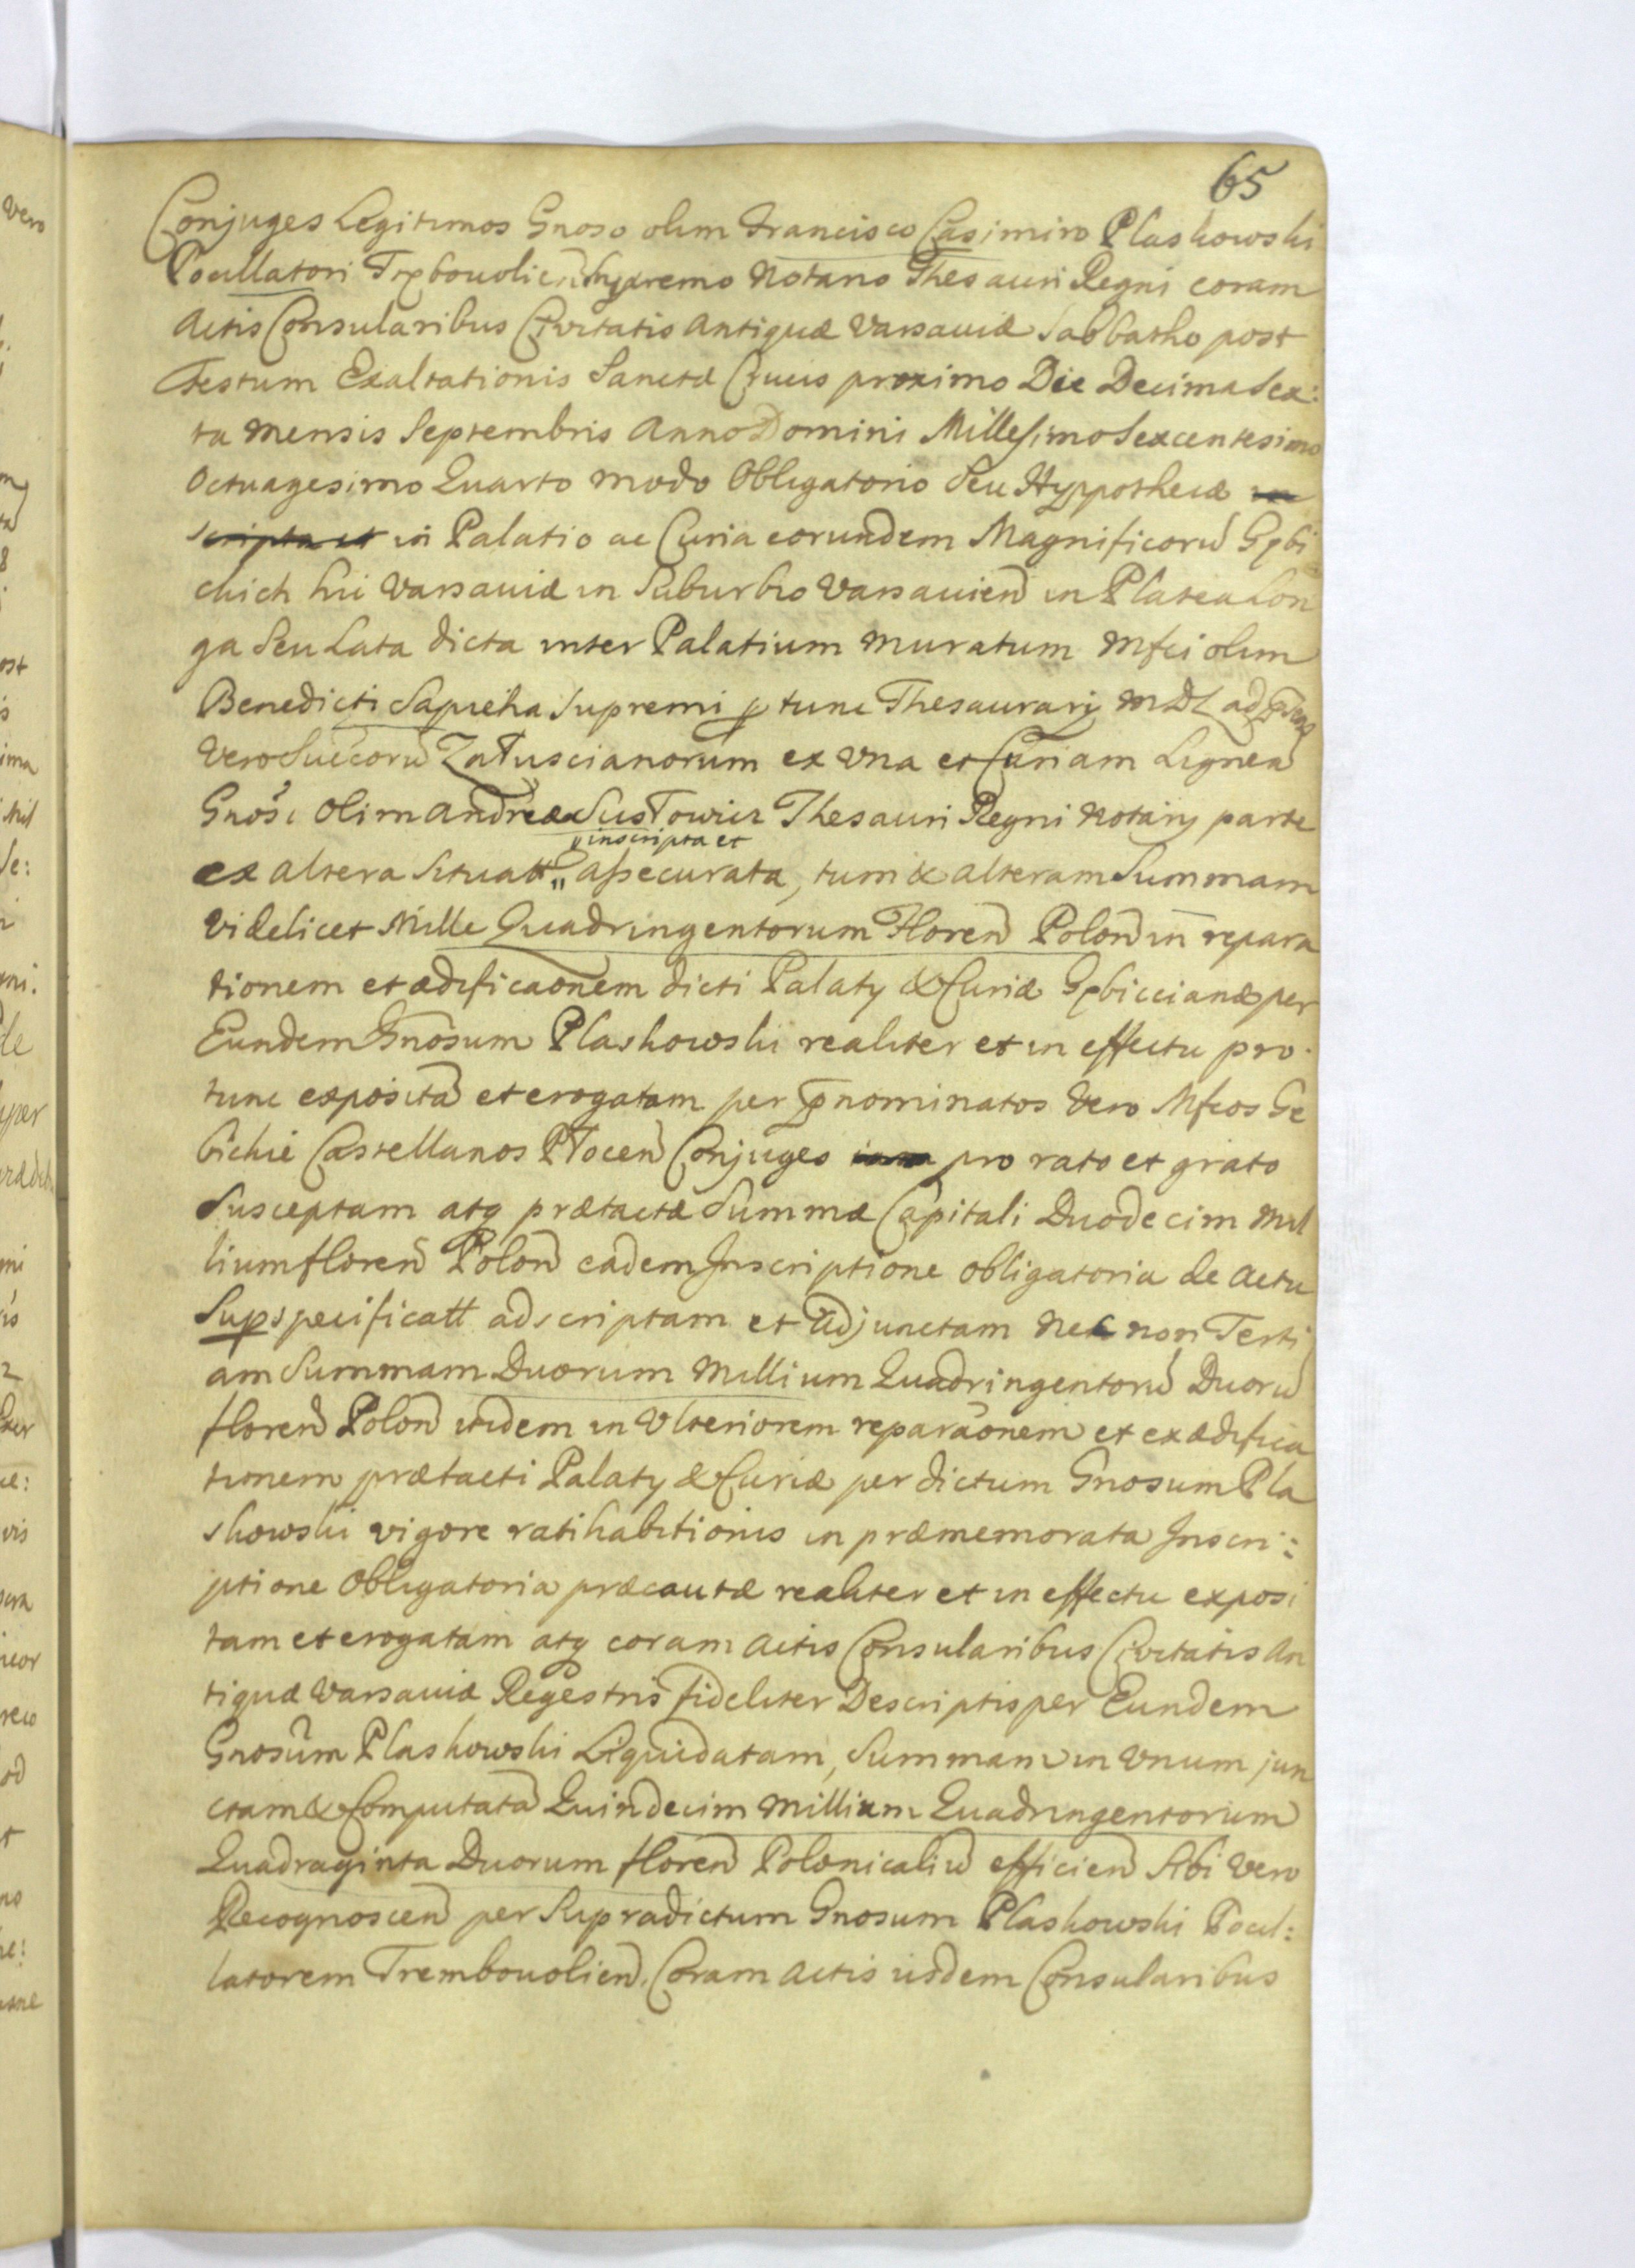 65
Conjuges Legitimos Gnoso olim Francisco Casimiro Plaskowski
Pocillatori Trębovolien Supremo Notario Thesauri Regni coram
Actis Consularibus Civitatis Antiquæ Varsaviæ Sabbatho post
Festum Exaltationis Sanctæ Crucis proximo Die Decima Sex:
ta mensis Septembris Anno Domini Millesimo Sexcentesimo
Octuagesimo Quarto modo Obligatorio Seu Hyppothecæ in
scripta et in Palatio ac Curia eorundem Magnificorũ Gębi
ckich hic Varsaviæ in Suburbio Varsavien in Platea Lon
ga Seu Lata dicta inter Palatium muratum Mfci olim
Benedicti Sapieha Supremi p tunc Thesaurarij MDL ad
vero Succorũ Załuscianorum ex Una et Curiam Ligneã
Gnosi Olim Andreæ Susłowicz Thesauri Regni Notarij parte
inscripta et
ex altera Situatt" assecurata, tum & alteram Summam
Videlicet Mille Quadringentorum Floren Polon in repara
tionem et ædificaonem dicti Palatij & Curiæ Gębiccianæ per
Eundem Gnosum Plaskowski realiter et in effectu pro
tunc expositã et erogatam per p̃nominatos Vero Mfcos Gę
bickie Castellanos Płocen Conjuges pro rato et grato
Susceptam atq prætactæ Summæ Capitali Duodecim Mil
lium floren Polon eadem Inscriptione obligatoria de Actu
Sup specificatt adscriptam et adjunctam Nec non Terti
am Summam Duorum Millium Quadringentorũ Duorũ
floren Polon itidem in Ulteriorem reparaonem et exædifica
tionem prætacti Palatij & Curiæ per dictum Gnosum Pla
skowski vigore ratihabitionis in præmemorata Inscri:
ptione Obligatoria præcautæ realiter et in effectu exposi
tam et erogatam atq coram Actis Consularibus Civitatis An
tiquæ Varsaviæ Regestris fideliter Descriptis per Eundem
Gnosum Plaskowski Liquidatam, Summam in Unum jun
ctam & Computatã Quindecim Millium Quadringentorum
Quadraginta Duorum floren Polonicaliũ efficien Sibi Vero
Recognoscen per Supradictum Gnosum Plaskowski Pocil:
latorem Trembovolien. Coram Actis iisdem Consularibus